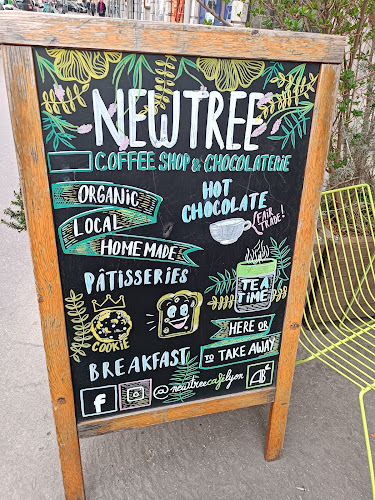 NEWTREE
COFFEE SHOP & CHOCOLATERIE
ORGANIC
LOCAL
HOME MADE
HOT
CHOCOLATE
FAIR
TRADE!
PÂTISSERIES
TEA
TIME
COOKIE
HERE OR
TO TAKE AWAY
BREAKFAST
f
@newtreecafelyon